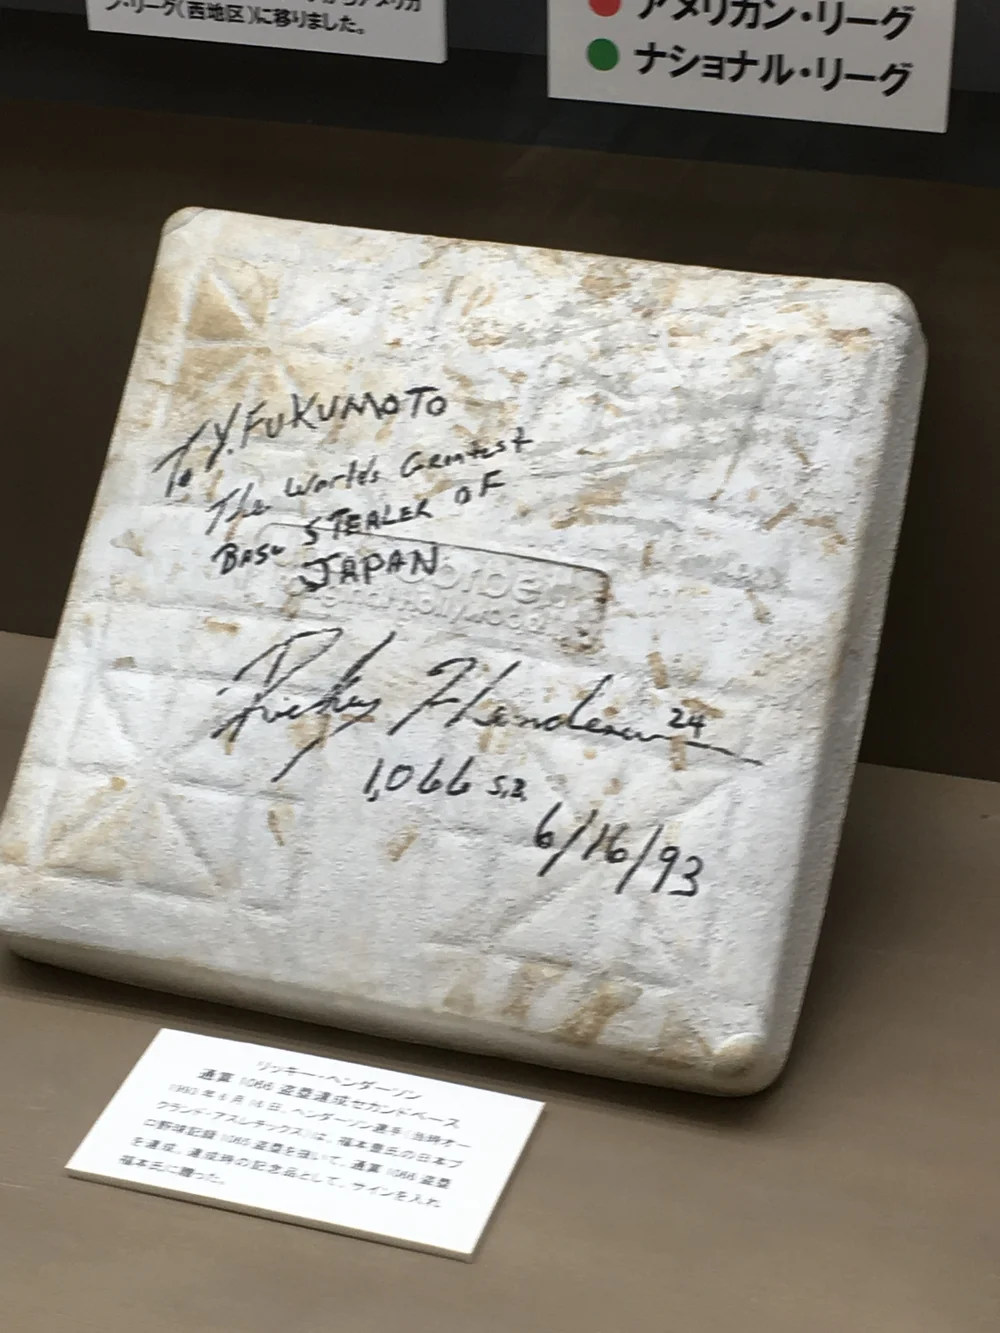 ン・リーグ(西地区)に移りました。
アメリカン・リーグ
ナショナル・リーグ
To Y. FUKUMOTO
The World's Greatest
Base STEALER OF
JAPAN
Corbett
Rickey Henderson 24
1,066 S.B.
6/16/93
リッキー・ヘンダーソン
通算1066盗塁達成セカンドベース
1993年6月16日、ヘンダーソン選手(当時オー
クランド・アスレチックス)は、福本豊氏の日本プ
ロ野球記録1065盗塁を抜いて、通算1066盗塁
を達成。達成時の記念品として、サインを入れ
福本氏に贈った。